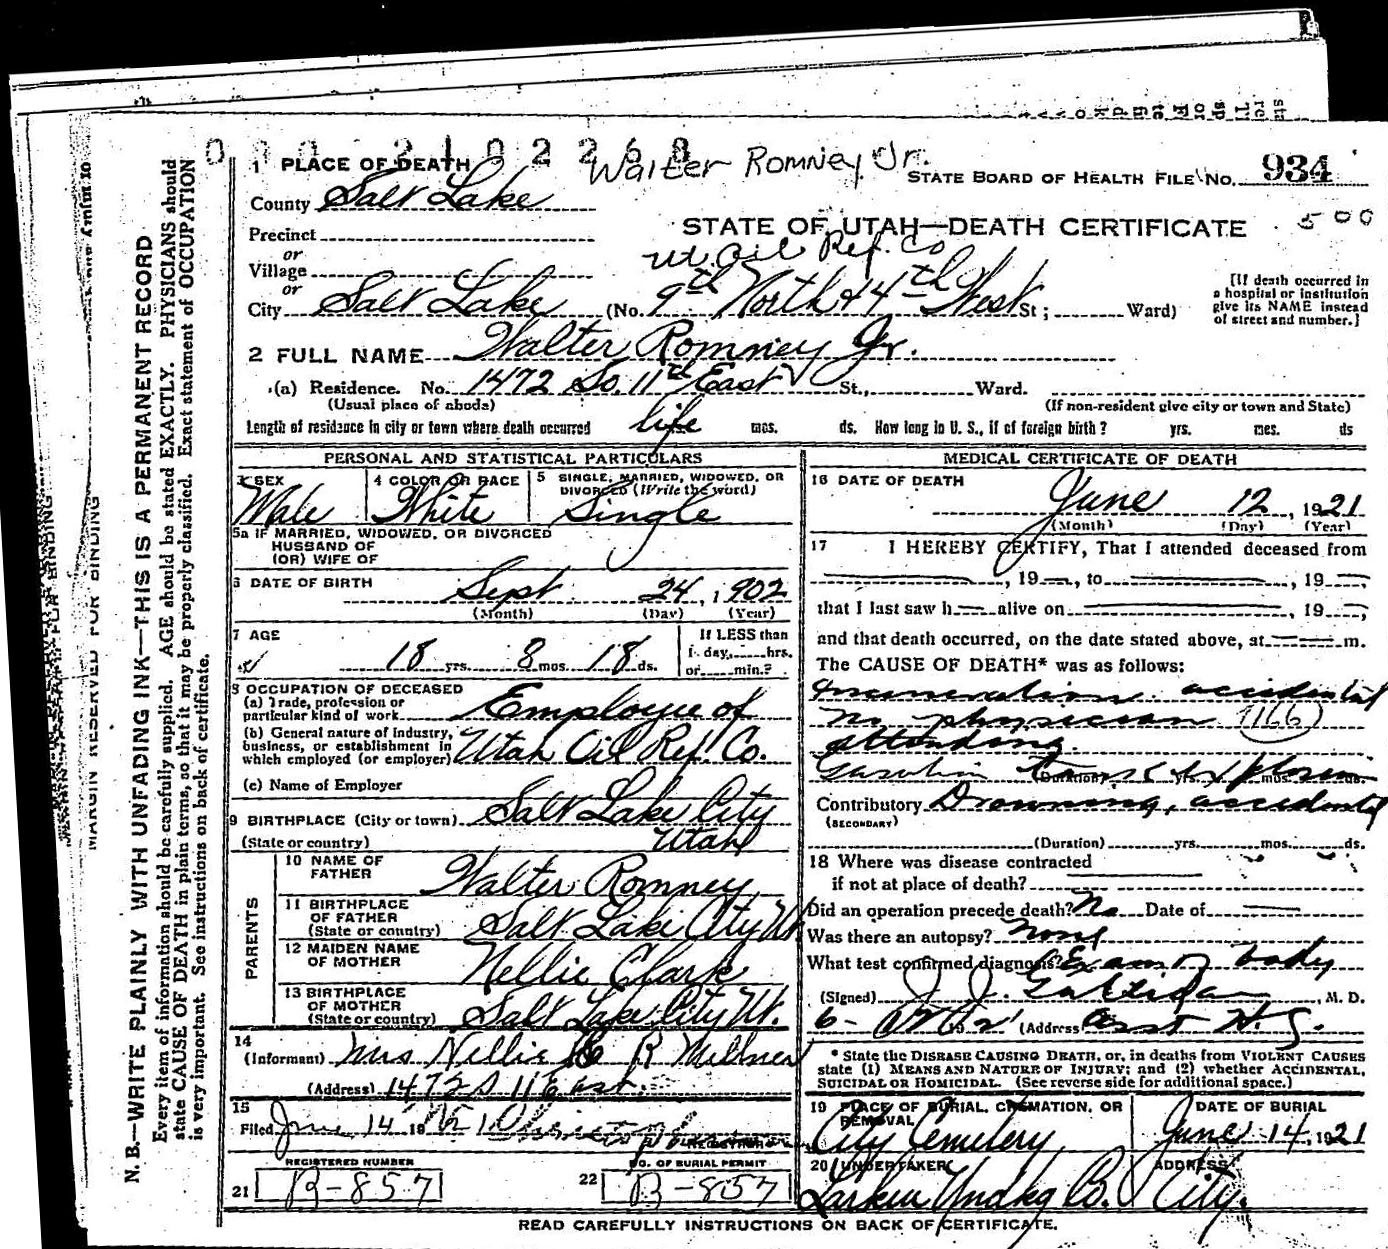 000 2102268
Walter Romney, Jr.
1 PLACE OF DEATH
STATE BOARD OF HEALTH FILE NO. 934
County Salt Lake
STATE OF UTAH—DEATH CERTIFICATE 500
Precinct
or
Village
or
Ut. Oil Ref. Co
City Salt Lake (No. 9th North & 4th West St; Ward)
[If death occurred in
a hospital or institution
give its NAME instead
of street and number.]
2 FULL NAME Walter Romney Jr.
(a) Residence. No. 1472 So. 11th East St., Ward.
(Usual place of abode) (If non-resident give city or town and State)
Length of residence in city or town where death occurred life mos. ds. How long in U. S., if of foreign birth? yrs. mos. ds
PERSONAL AND STATISTICAL PARTICULARS
3 SEX
Male
4 COLOR OR RACE
White
5 SINGLE, MARRIED, WIDOWED, OR
DIVORCED (Write the word)
Single
5a IF MARRIED, WIDOWED, OR DIVORCED
HUSBAND OF
(OR) WIFE OF
6 DATE OF BIRTH Sept 24, 1902
(Month) (Day) (Year)
7 AGE
18 yrs. 8 mos. 18 ds.
If LESS than
1 day, hrs.
or min.?
8 OCCUPATION OF DECEASED
(a) Trade, profession or
particular kind of work Employee of
(b) General nature of industry,
business, or establishment in
which employed (or employer) Utah Oil Ref. Co.
(c) Name of Employer
9 BIRTHPLACE (City or town) Salt Lake City
(State or country) Utah
PARENTS
10 NAME OF
FATHER Walter Romney
11 BIRTHPLACE
OF FATHER
(State or country) Salt Lake City Ut
12 MAIDEN NAME
OF MOTHER Nellie Clark
13 BIRTHPLACE
OF MOTHER
(State or country) Salt Lake City Ut.
14
(Informant) Mrs Nellie R Millner
(Address) 1472 S 11 East.
15
Filed June 14 19
REGISTERED NUMBER
21 B-857
NO. OF BURIAL PERMIT
22 B-857
MEDICAL CERTIFICATE OF DEATH
16 DATE OF DEATH
June 12, 1921
(Month) (Day) (Year)
17 I HEREBY CERTIFY, That I attended deceased from
, 19 , to , 19
that I last saw h alive on , 19
and that death occurred, on the date stated above, at m.
The CAUSE OF DEATH* was as follows:
Incineration accidental
no physician 166
attending.
Gasoline Tank Explosion
(Duration) yrs. mos. ds.
Contributory Drowning, accidental
(SECONDARY)
(Duration) yrs. mos. ds.
18 Where was disease contracted
if not at place of death?
Did an operation precede death? No Date of
Was there an autopsy? None
What test confirmed diagnosis? Exam of body
(Signed) J. J. Galligan, M. D.
(Address
* State the DISEASE CAUSING DEATH, or, in deaths from VIOLENT CAUSES
state (1) MEANS AND NATURE OF INJURY; and (2) whether ACCIDENTAL,
SUICIDAL OR HOMICIDAL. (See reverse side for additional space.)
19 PLACE OF BURIAL, CREMATION, OR
REMOVAL
City Cemetery
DATE OF BURIAL
June 14, 1921
20 UNDERTAKER
Larkin Undkg Co.
ADDRESS
City.
READ CAREFULLY INSTRUCTIONS ON BACK OF CERTIFICATE.
MARGIN RESERVED FOR BINDING
N. B.—WRITE PLAINLY WITH UNFADING INK—THIS IS A PERMANENT RECORD
Every item of information should be carefully supplied. AGE should be stated EXACTLY. PHYSICIANS should
state CAUSE OF DEATH in plain terms, so that it may be properly classified. Exact statement of OCCUPATION
is very important. See instructions on back of certificate.